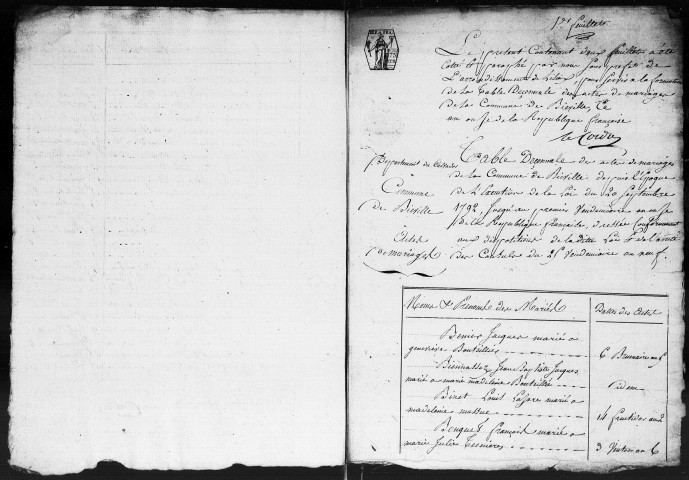 1er feuillet
Le present Contenant deux feuillets a été
Cotté & paraphé par nous Sous préfet de
L'arrondissement de pour servir a la formation
de la table Decennale des actes de mariages
de la Commune de Bieville, Ce
an onze de la Republique française
Departement du Calvados
Commune
de Bieville
Actes
de mariages
Table Decennale des actes de mariages
de la Commune de Bieville depuis l'Epoque
de L'Execution de la Loi du 20 septembre
1792, Jusqu'au premier Vendemiaire an onze
de la Republique française, dressée Conformement
aux dispositions de la ditte Loi & de l'arrêté
des Consuls du 25 Vendemiaire an neuf.
Noms & Prenoms des Mariés
Dattes des Actes
Benier Jacques marié a
genevieve Bouteiller
6 Brumaire an
Jean Baptiste Jacques
marié a marie madeleine Bouteiller
idem
Binet Louis marié a
madeleine
14 fructidor an 2
Bouquet François marié a
marie Julie
3 Ventose an 6